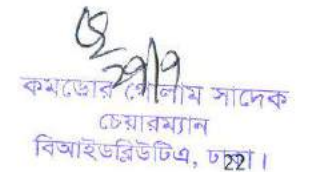 কমডোর গোলাম সাদেক
চেয়ারম্যান
বিআইডব্লিউটিএ, ঢাকা।
22